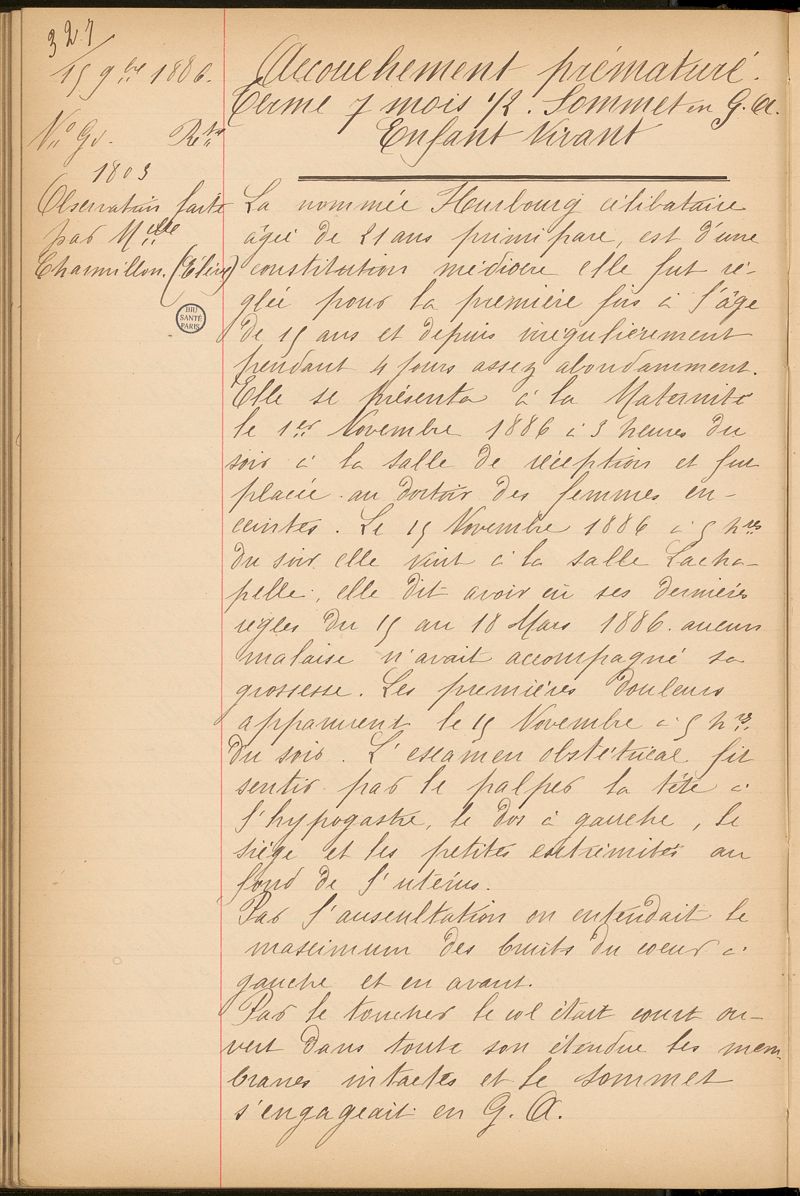 327
15 9bre 1886.
No Gl. Rtre
1803
Observation faite
par Melle
Charmillon. (Elève)
BIU
SANTÉ
PARIS
Accouchement prématuré.
Terme 7 mois 1/2. Sommet en G. A.
Enfant Vivant
La nommée Hurbourg célibataire
âgée de 21 ans primipare, est d'une
constitution médiocre elle fut ré-
glée pour la première fois à l'âge
de 15 ans et depuis irrégulièrement
pendant 4 jours assez abondamment.
Elle se présenta à la Maternité
le 1er Novembre 1886 à 3 heures du
soir à la salle de réception et fut
placée au dortoir des femmes en-
ceintes. Le 15 Novembre 1886 à 5 hres
du soir elle vint à la salle Lacha-
pelle, elle dit avoir eu ses dernières
règles du 15 au 18 Mars 1886. aucun
malaise n'avait accompagné sa
grossesse. Les premières douleurs
apparurent le 15 Novembre à 5 hres
du soir. L'examen obstétrical fit
sentir par le palper la tête à
l'hypogastre, le dos à gauche, le
siège et les petites extrémités au
fond de l'utérus.
Par l'auscultation on entendait le
maximum des bruits du coeur à
gauche et en avant.
Par le toucher le col était court ou-
vert dans toute son étendue les mem-
branes intactes et le sommet
s'engageait en G. A.